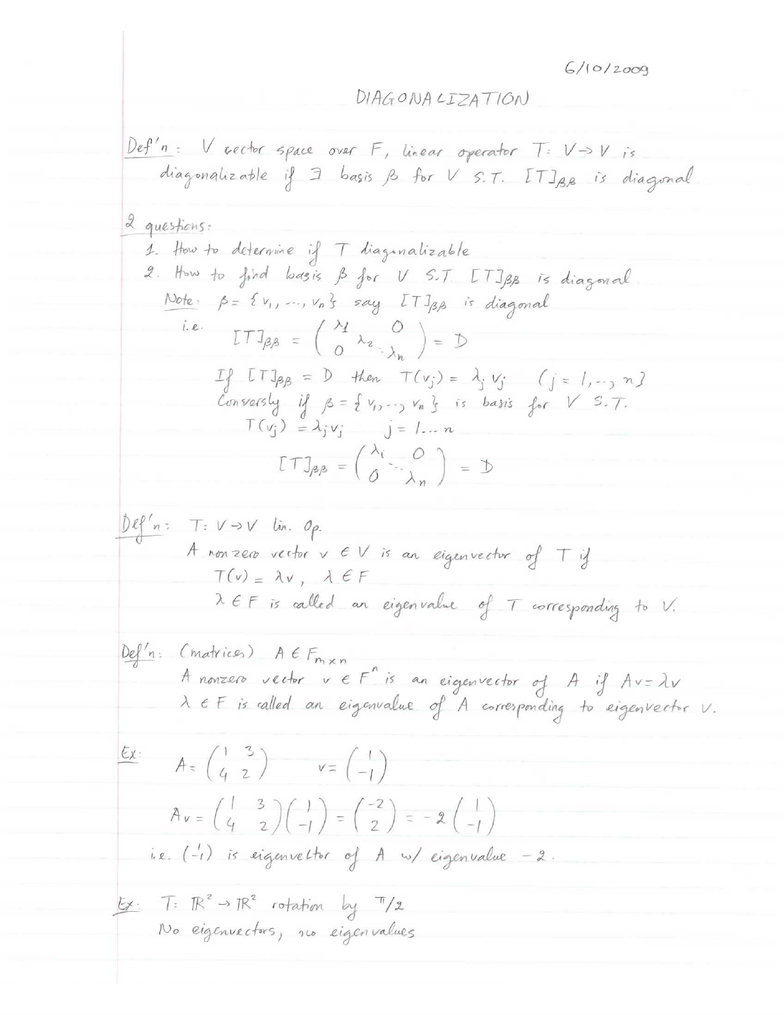 6/10/2009
DIAGONALIZATION
Def'n: V vector space over F, linear operator T: V→V is
diagonalizable if ∃ basis β for V S.T. [T]ββ is diagonal
2 questions:
1. How to determine if T diagonalizable
2. How to find basis β for V S.T [T]ββ is diagonal
Note: β = {v₁, ..., vₙ} say [T]ββ is diagonal
i.e.
[T]ββ = (λ1 0 λ₂ 0 ... λₙ) = D
If [T]ββ = D then T(vⱼ) = λⱼ vⱼ (j = 1, ..., n}
Conversly if β = {v₁, ..., vₙ} is basis for V S.T.
T(vⱼ) = λⱼvⱼ j = 1...n
[T]ββ = (λ₁ 0 ... 0 λₙ) = D
Def'n: T: V→V lin. Op.
A nonzero vector v ∈ V is an eigenvector of T if
T(v) = λv, λ ∈ F
λ ∈ F is called an eigenvalue of T corresponding to V.
Def'n: (matrices) A ∈ Fₘₓₙ
A nonzero vector v ∈ Fⁿ is an eigenvector of A if Av = λv
λ ∈ F is called an eigenvalue of A corresponding to eigenvector v.
Ex: A = (1 3 4 2) v = (1 -1)
Av = (1 3 4 2)(1 -1) = (-2 2) = -2 (1 -1)
i.e. (1 -1) is eigenvector of A w/ eigenvalue -2.
Ex: T: ℝ² → ℝ² rotation by π/2
No eigenvectors, no eigenvalues